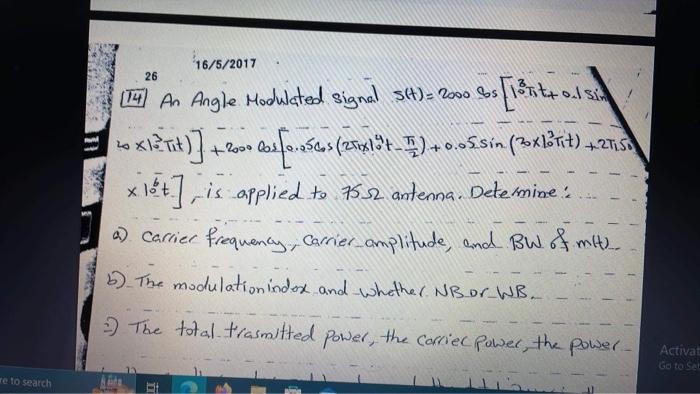 16/5/2017
26
[14] An Angle Modulated signal S(t)=2000 Cos[10^8πt+0.1 sin(
20×10^3πt)]+2000 Cos[0.05Cos(2π×10^4t-π/2)+0.05sin(20×10^3πt)+2π50
×10^6t], is applied to 75Ω antenna. Determine:
a) Carrier frequency, Carrier amplitude, and BW of m(t)
b) The modulation index and whether NB or WB.
The total trasmitted power, the carrier power, the power
Activat
Go to Set
re to search